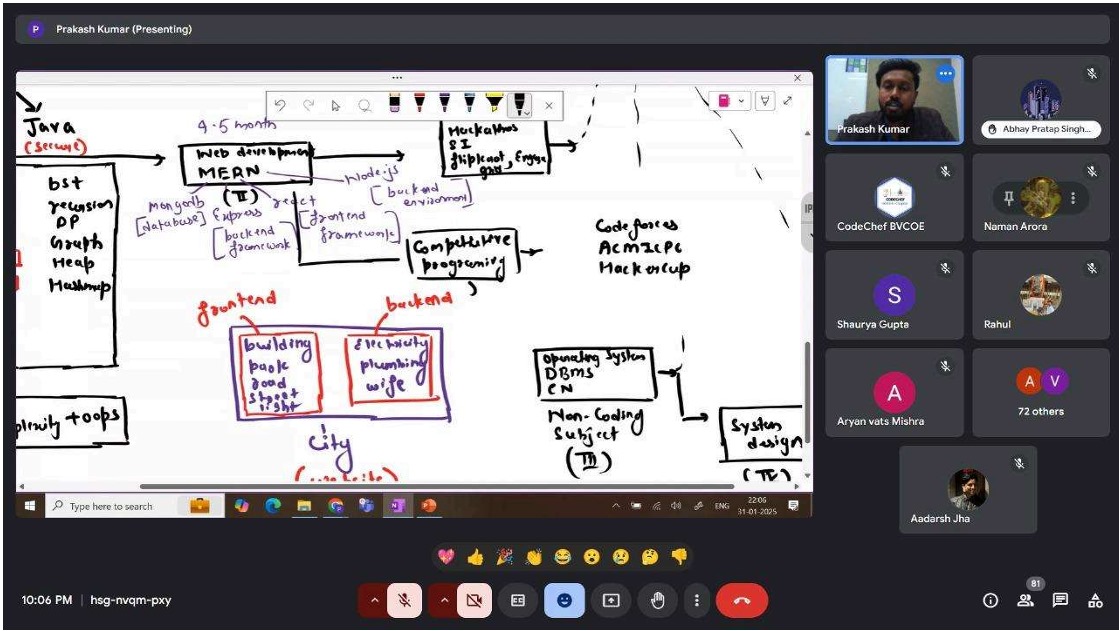 P Prakash Kumar (Presenting)
Java
(secure)
bst
recursion
DP
Graph
Heap
Hashmap
plexity + oops
4-5 month
Web development
MERN
(II)
mongodb
[database]
Express
[backend
framework]
react
[frontend
framework]
Node.js
[backend
environment]
Hackathos
SI
grid
Competitive
programing
Codeforces
ACMICPC
Hackercup
frontend
backend
building
park
road
street
light
Electricity
plumbing
wife
City
Operating System
DBMS
CN
Non-Coding
Subject
(III)
System
design
(IV)
Type here to search
ENG
22:06
31-01-2025
Prakash Kumar
Abhay Pratap Singh...
CodeChef BVCOE
Naman Arora
S
Shaurya Gupta
Rahul
A
Aryan vats Mishra
A V
72 others
Aadarsh Jha
10:06 PM | hsg-nvqm-pxy
81